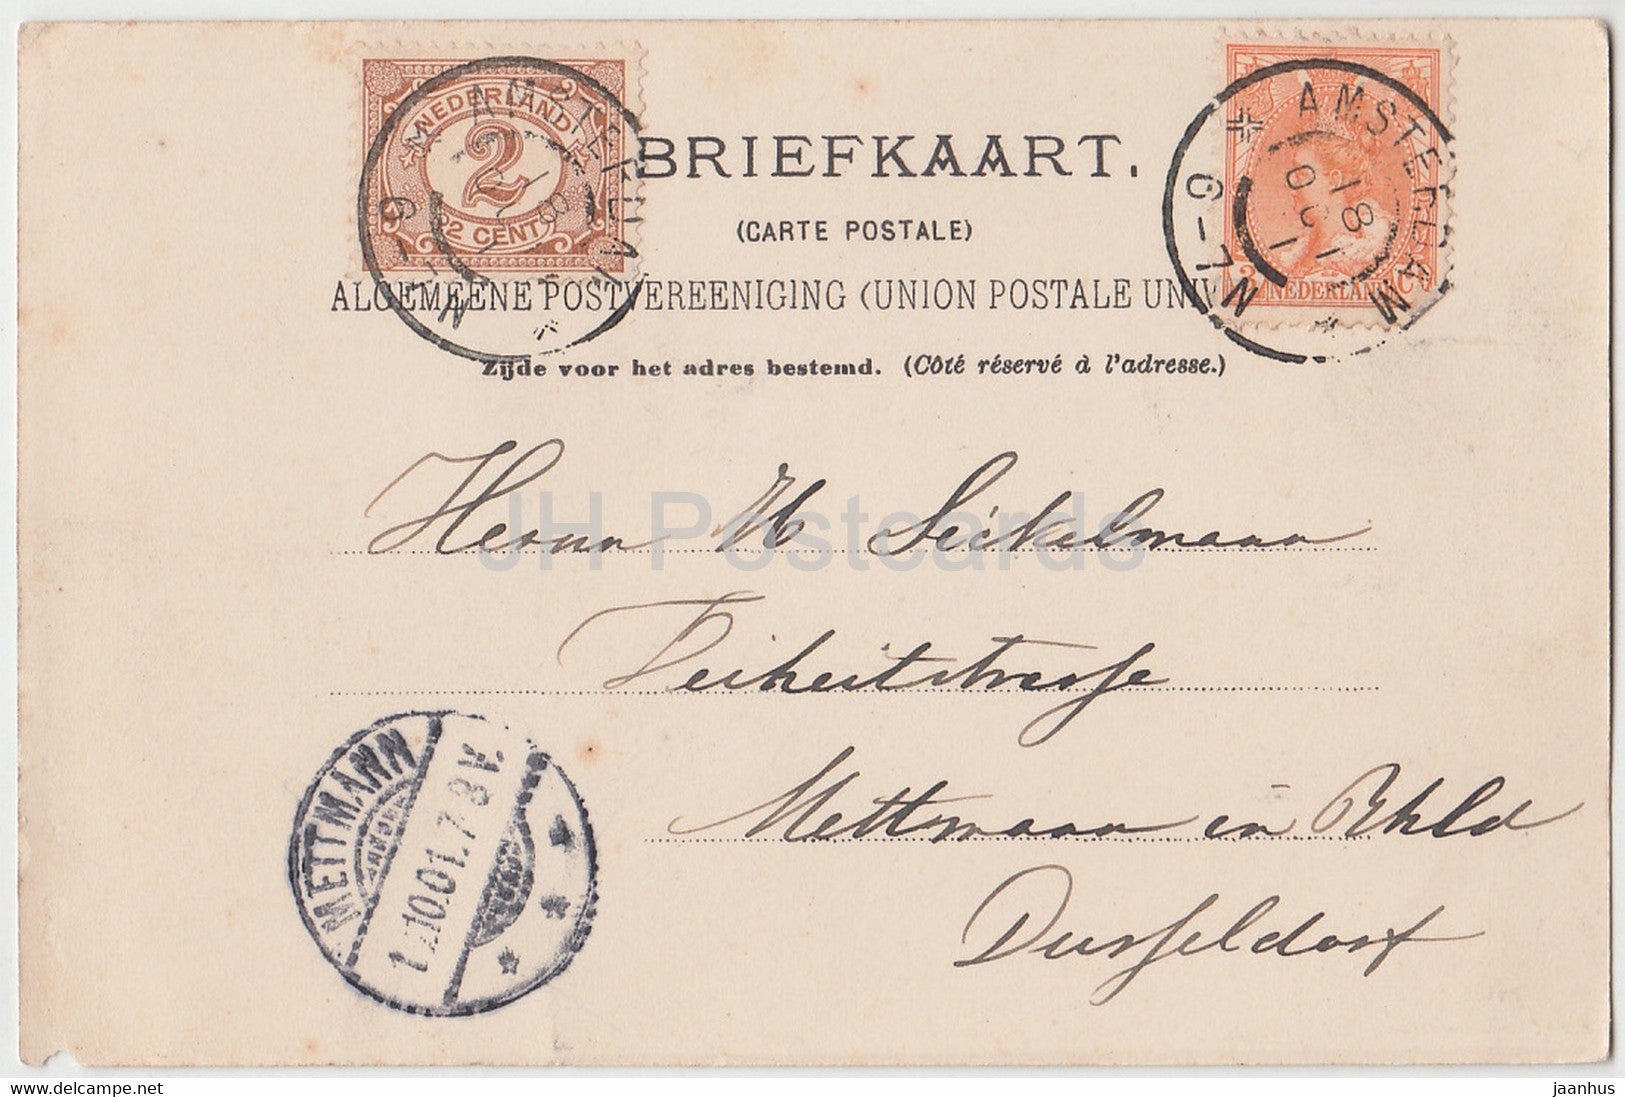 NEDERLAND
2
2 CENT
AMSTERDAM
BRIEFKAART.
(CARTE POSTALE)
ALGEMEENE POSTVEREENIGING (UNION POSTALE UNIV
Zijde voor het adres bestemd. (Côté réservé à l'adresse.)
AMSTERDAM
6-7N
18 1
3 NEDERLAND
Herrn M Seikelmann
Feiheitstrasse
Mettmann in Rhld
Dusseldorf
METTMANN
10.01.7-8V.
JH Postcards
www.delcampe.net
jaanhus